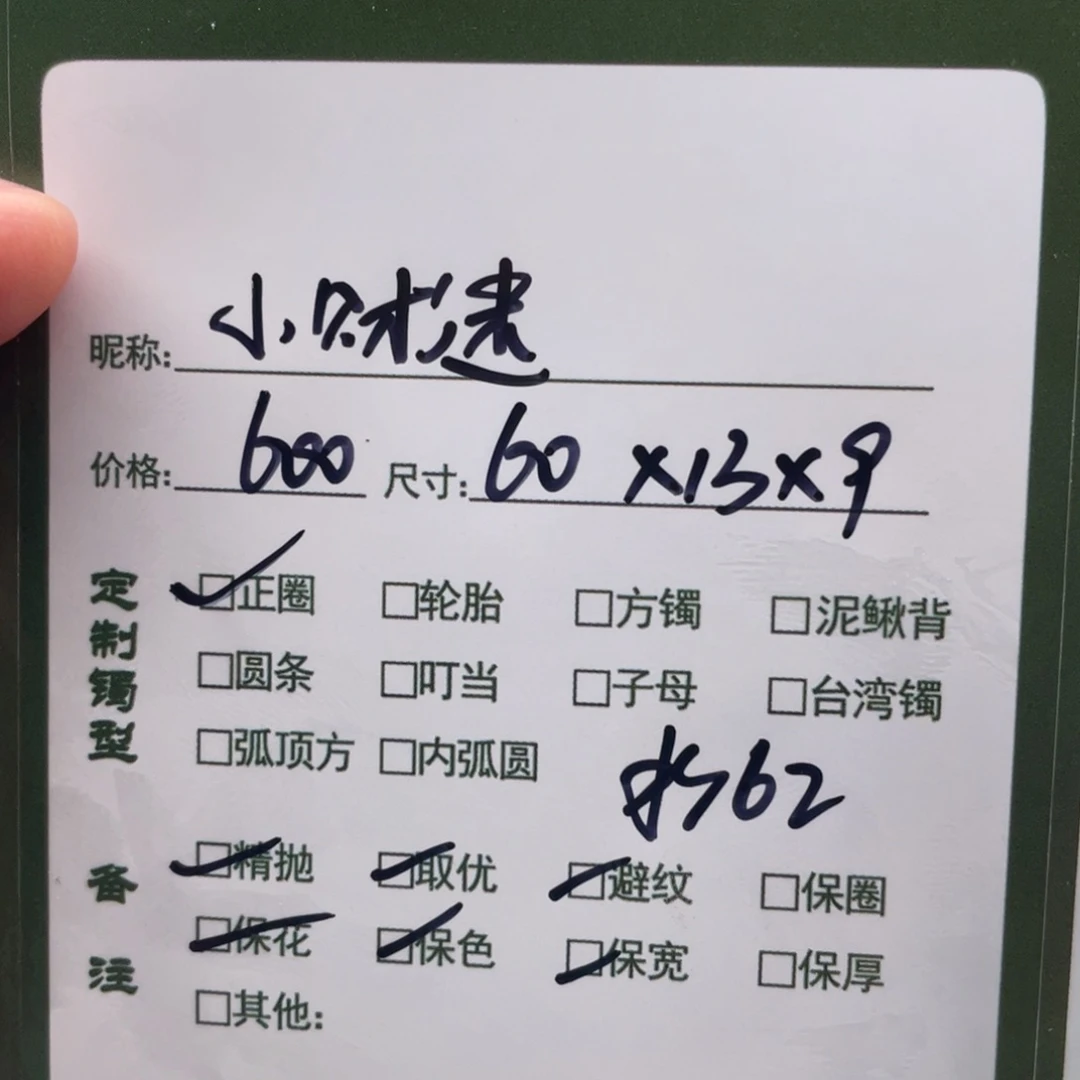 昵称: 小财迷
价格: 600 尺寸: 60 ×13×9
定制镯型
正圈 轮胎 方镯 泥鳅背
圆条 叮当 子母 台湾镯
弧顶方 内弧圆
62
备注
精抛 取优 避纹 保圈
保花 保色 保宽 保厚
其他: